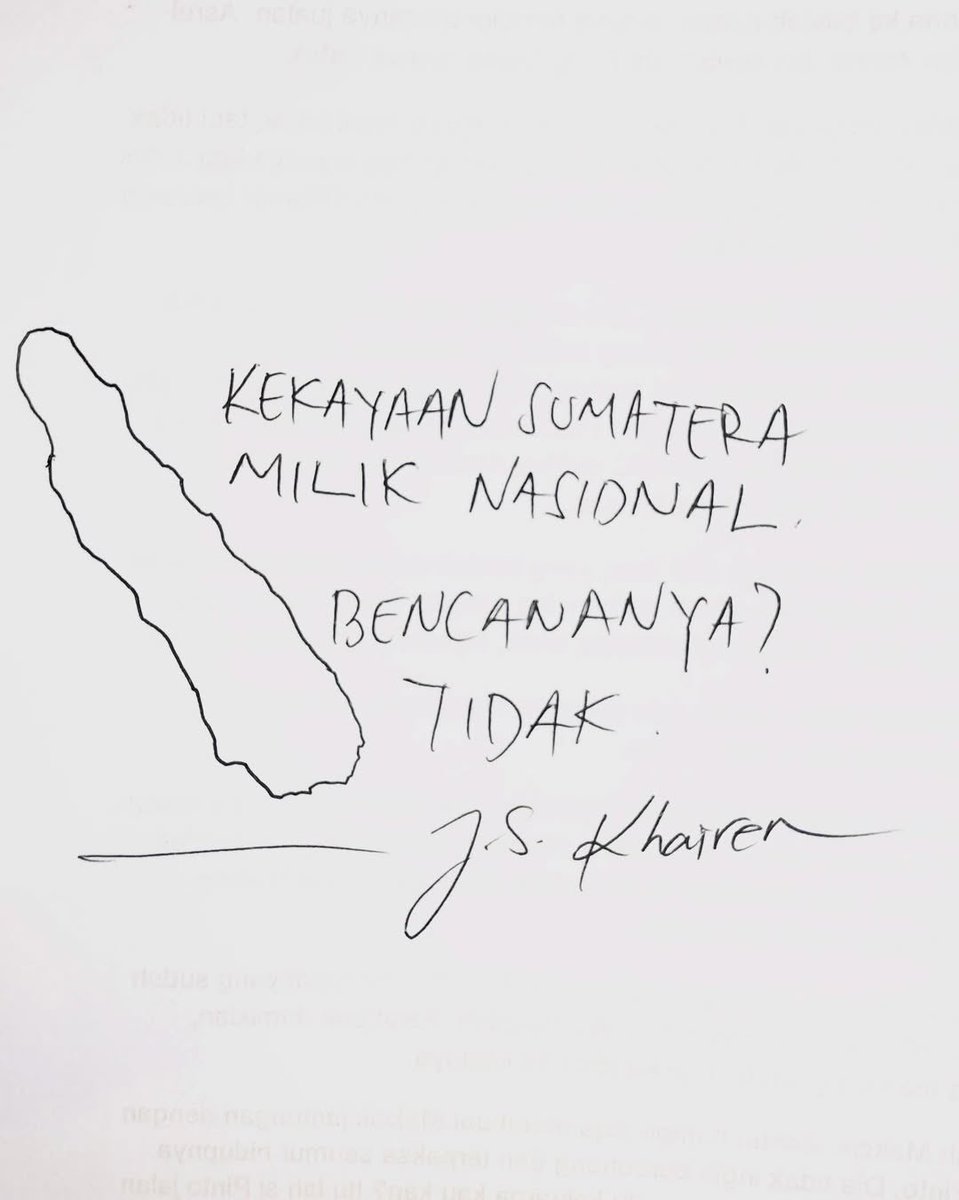 KEKAYAAN SUMATERA
MILIK NASIONAL.
BENCANANYA?
TIDAK.
J.S. Khairen